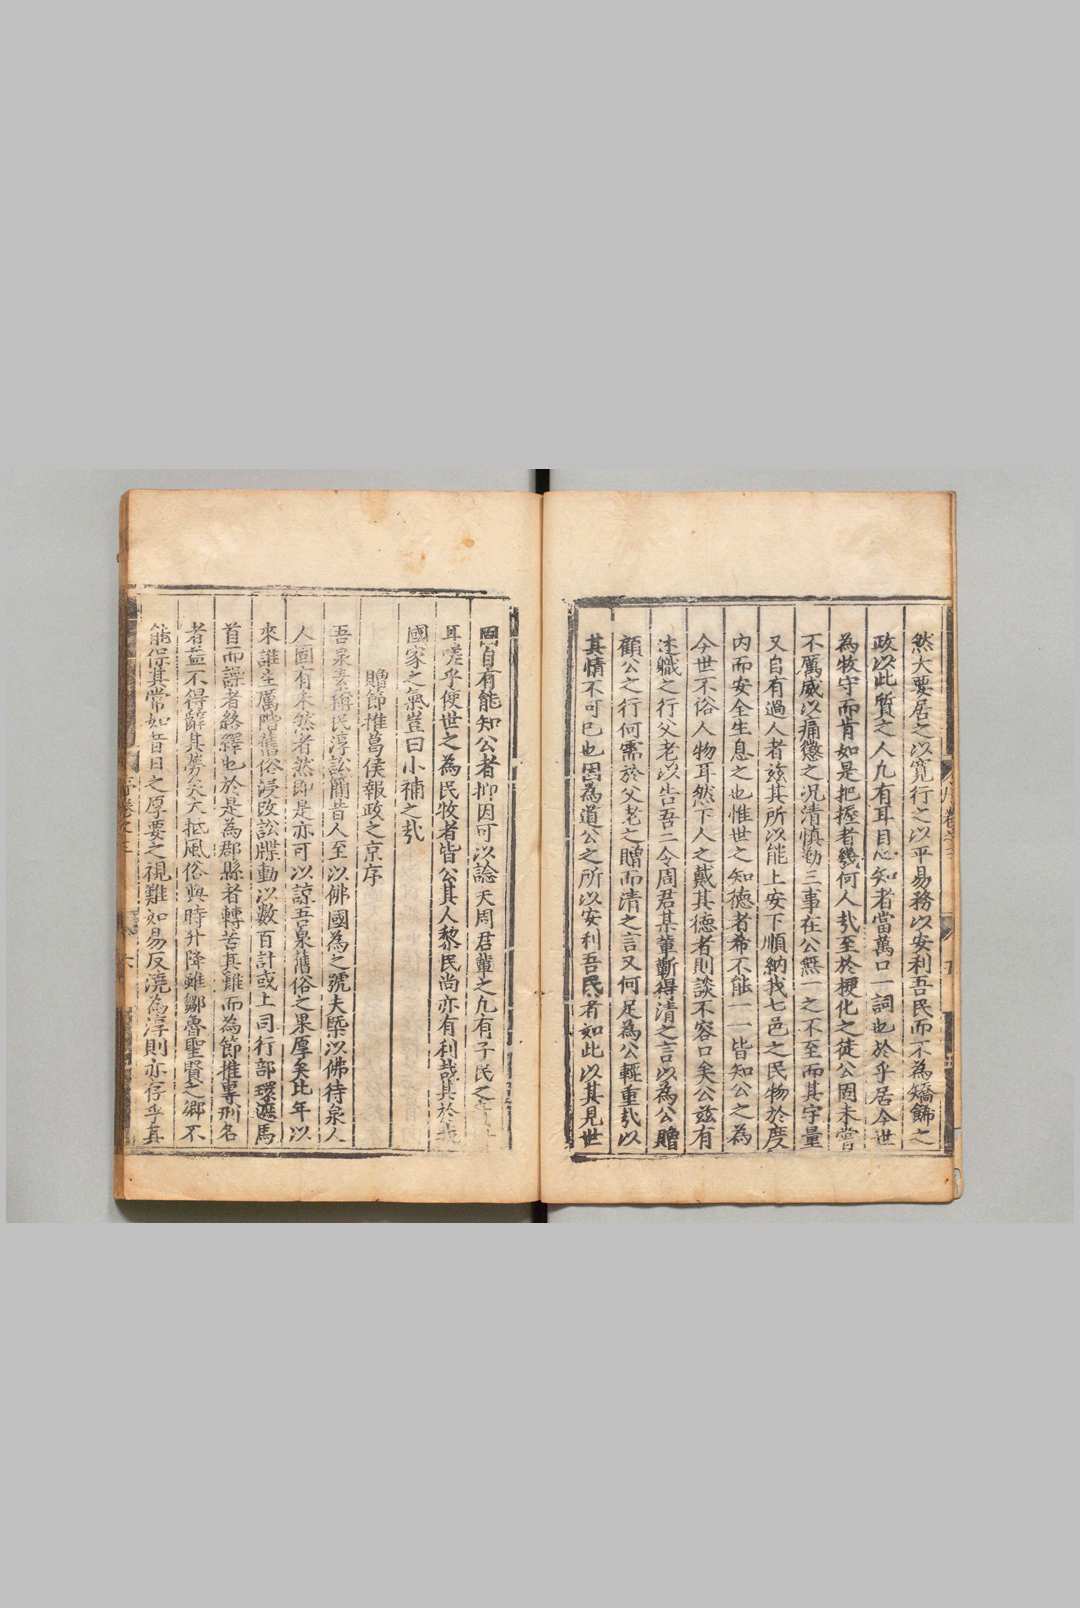 然大要居之以寬行之以平易務以安利吾民而不為矯飾之
政以此質之人凡有耳目心知者當萬口一詞也於乎居今世
為牧守而肯如是把握者幾何人㦲至於梗化之徒公固未嘗
不厲威以痛懲之况清慎勤三事在公無一之不至而其宇量
又自有過人者茲其所以能上安下順納我七邑之民物於度
內而安全生息之也惟世之知德者希不能一一皆知公之為
今世不俗人物耳然下人之戴其德者則談不容口矣公茲有
述職之行父老以告吾二令周君某董蘄得清之言以為公贈
顧公之行何需於父老之贈而清之言又何足為公輕重㦲以
其情不可已也因為道公之所以安利吾民者如此以其見世
固自有能知公者抑因可以諗天周君輩之凡有子民之
耳嗟乎使世之為民牧者皆公其人黎民尚亦有利哉其於
國家之氣豈曰小補之㦲
贈節推葛侯報政之京序
吾泉素稱民淳訟簡昔人至以佛國為之號夫槩以佛待泉人
人固有未然者然即是亦可以諒吾泉舊俗之果厚矣比年以
來誰生厲階舊俗浸改訟牒動以數百計或上司行部環遮馬
首而譟者絡繹也於是為郡縣者轉苦其難而為節推專刑名
者益不得辭其勞矣大抵風俗與時升降雖鄒魯聖賢之鄉不
能保其常如昔日之厚要之視難如易反澆為淳則亦存乎其